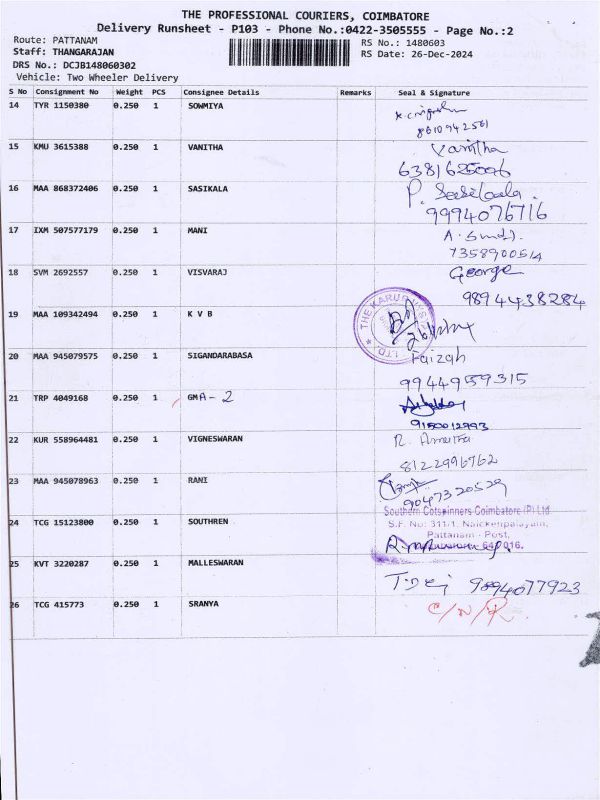 THE PROFESSIONAL COURIERS, COIMBATORE
Delivery Runsheet - P103 - Phone No.:0422-3505555 - Page No.:2
Route: PATTANAM
RS No.: 1480603
Staff: THANGARAJAN
RS Date: 26-Dec-2024
DRS No.: DCJB148060302
Vehicle: Two Wheeler Delivery
S No Consignment No Weight PCS Consignee Details Remarks Seal & Signature
14 TYR 1150380 0.250 1 SOWMIYA
8610942561
15 KMU 3615388 0.250 1 VANITHA Vanitha
16 MAA 868372406 0.250 1 SASIKALA P. Sasikala.
9994076716
17 IXM 507577179 0.250 1 MANI
7358900514
18 SVM 2692557 0.250 1 VISVARAJ George
9894438284
19 MAA 109342494 0.250 1 K V B
THE KARUR LTD.
20 MAA 945079575 0.250 1 SIGANDARABASA Faizah
9944959315
21 TRP 4049168 0.250 1 GMA - 2
9150012993
22 KUR 558964481 0.250 1 VIGNESWARAN R. Amutha
8122996762
23 MAA 945078963 0.250 1 RANI
9047320529
24 TCG 15123800 0.250 1 SOUTHREN
Southern Cotspinners Coimbatore (P) Ltd
S.F. No: 311/1, Naickenpalayam,
Pattanam - Post,
25 KVT 3220287 0.250 1 MALLESWARAN 9894077923
26 TCG 415773 0.250 1 SRANYA C/N/R